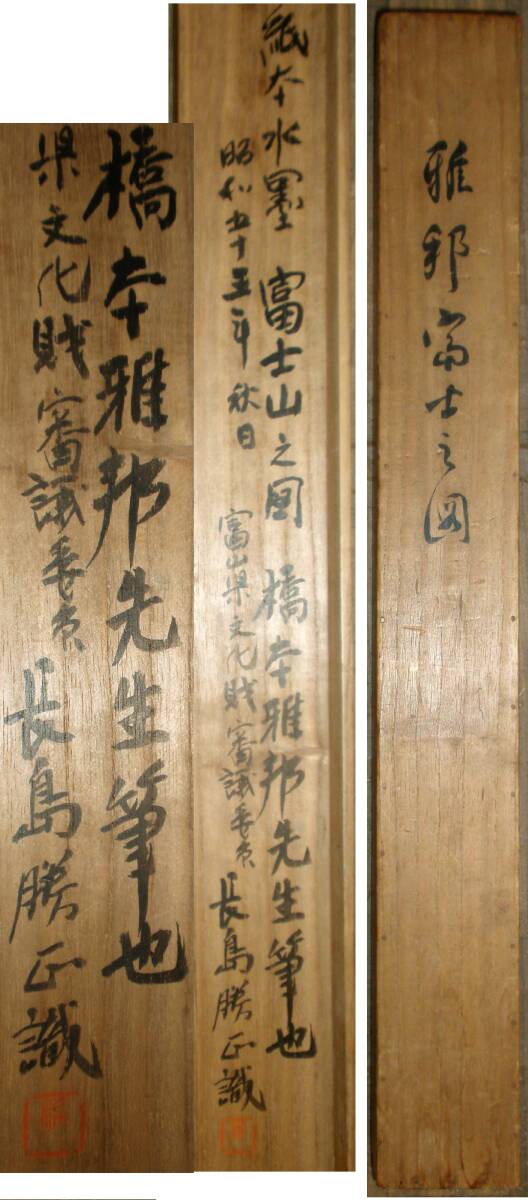 雅邦富士之図
紙本水墨 富士山之図 橋本雅邦先生筆也
昭和五十五年秋日 富山県文化財審議委員 長島勝正識
橋本雅邦先生筆也
県文化財審議委員 長島勝正識